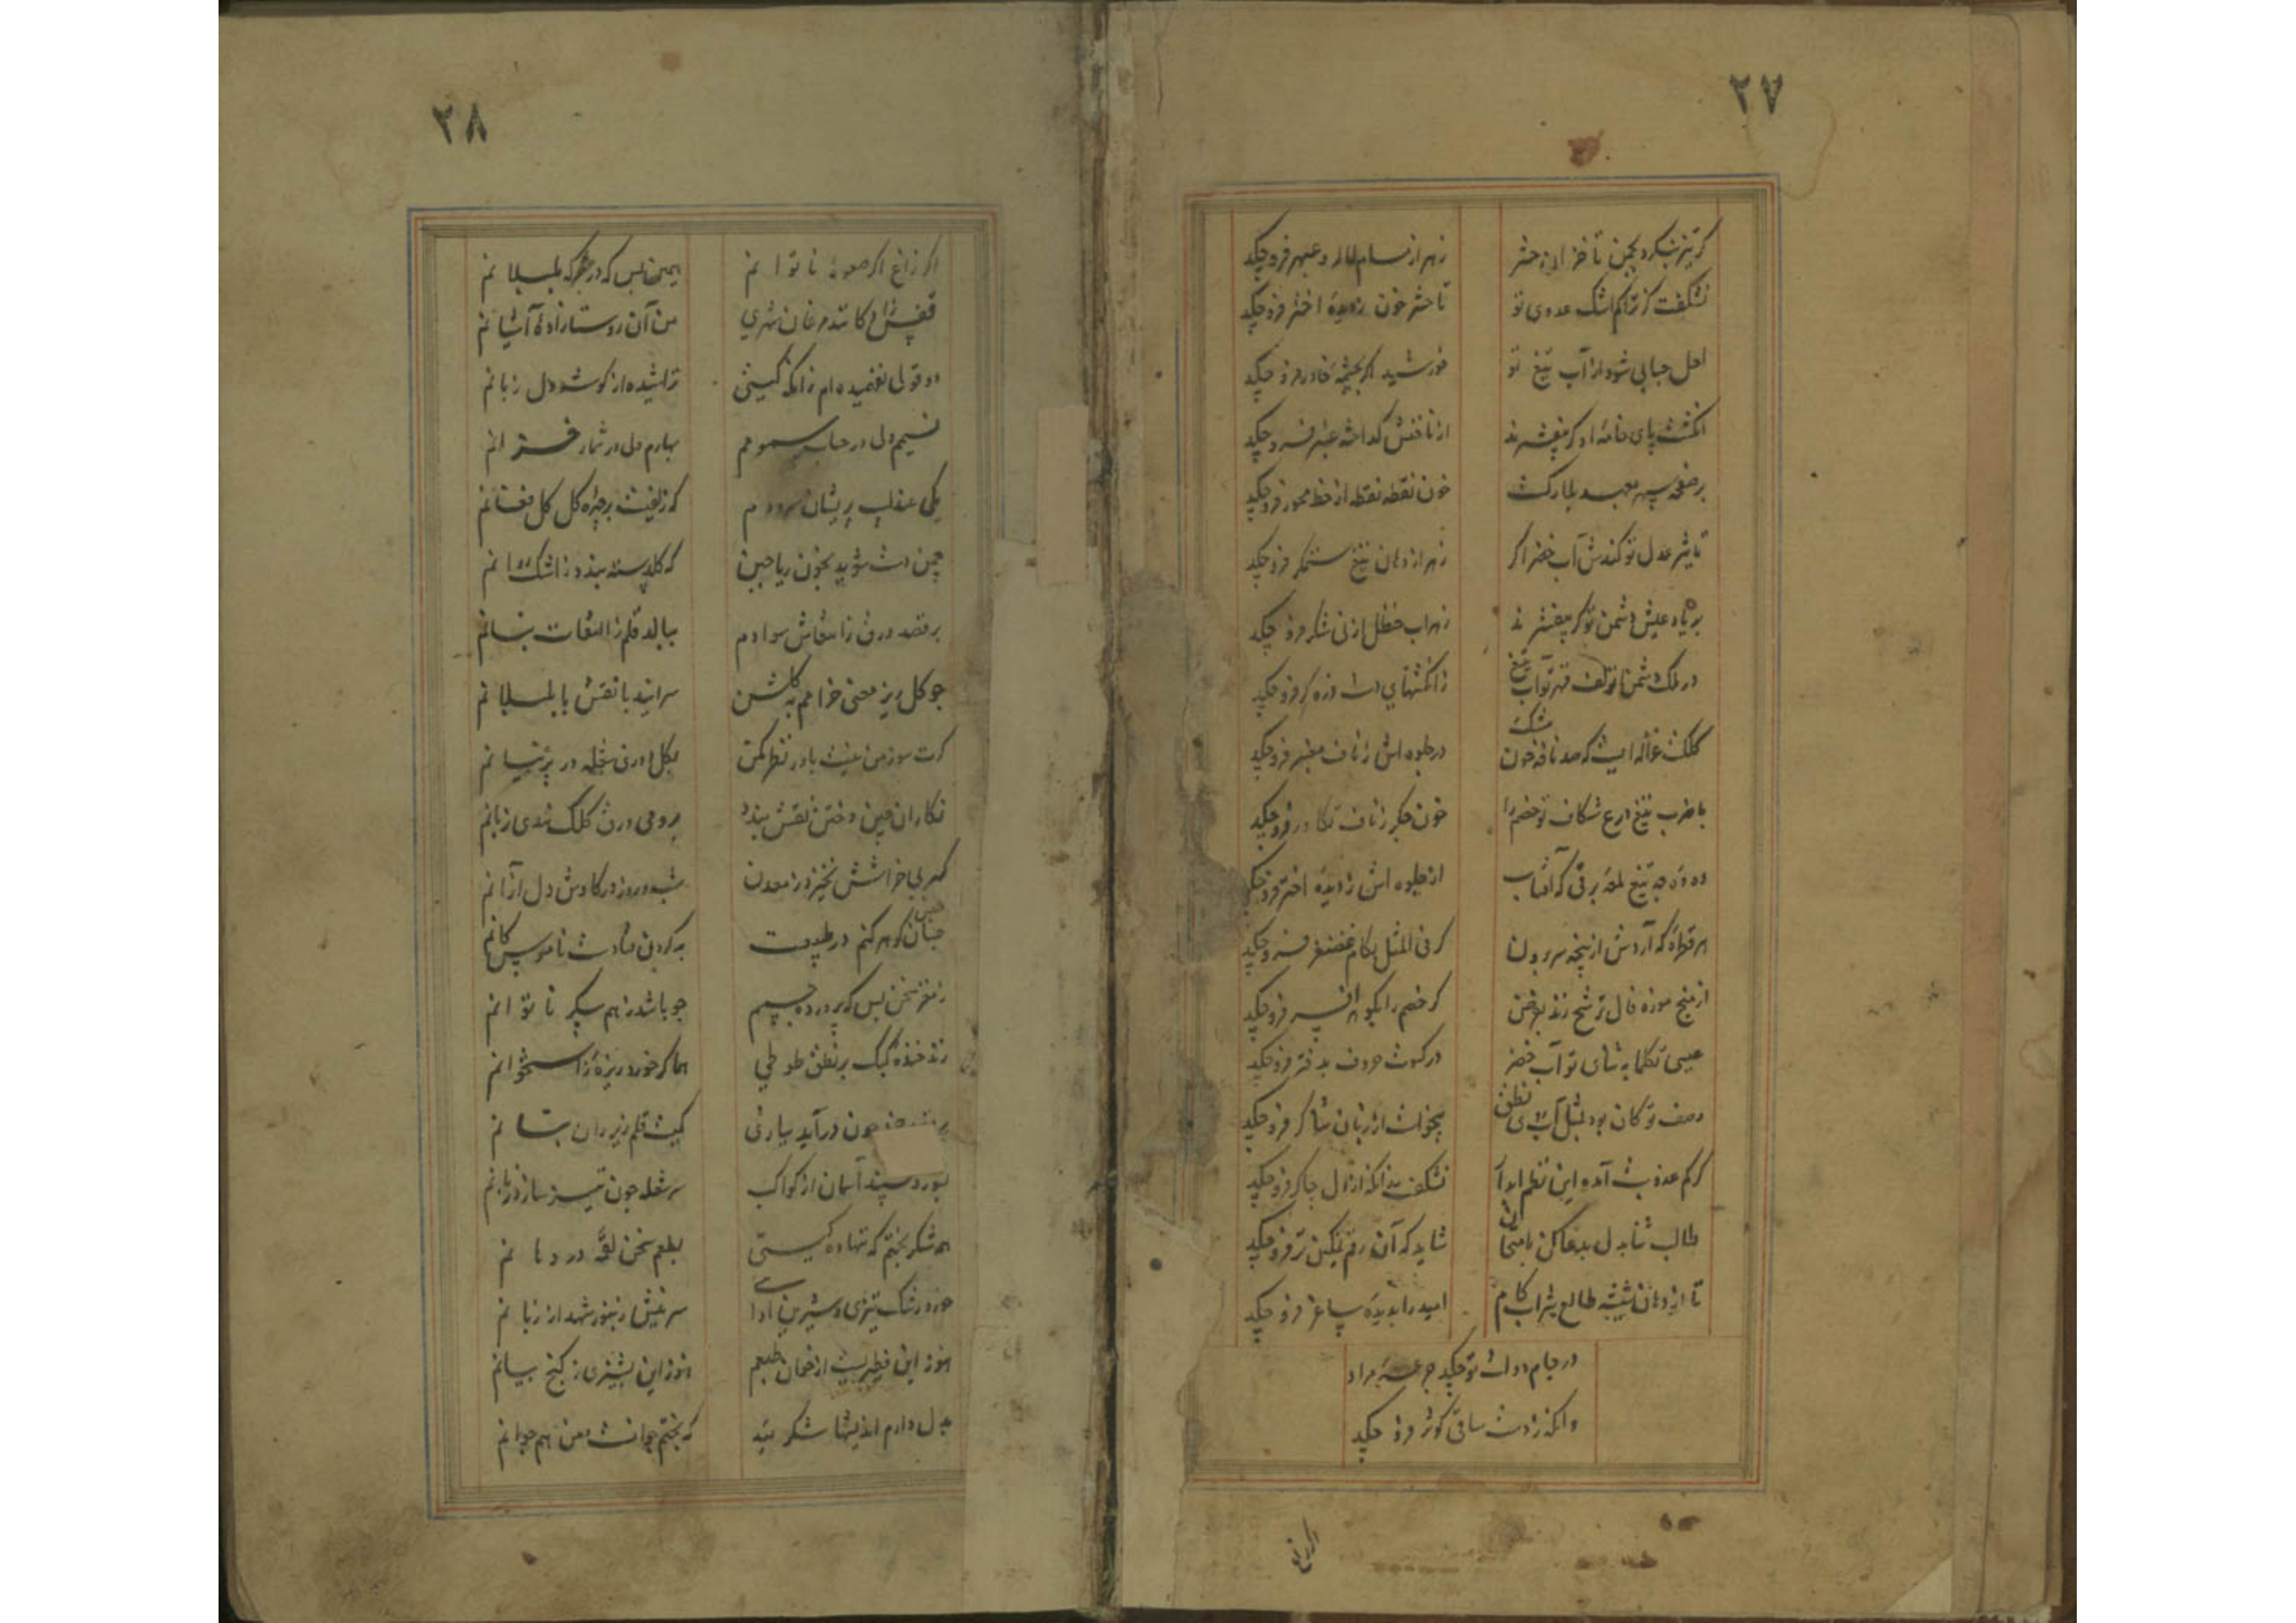 ۲۷
کر تیز بنکرد بچمن تا خزان حشر زهر از مسام لاله و عبهر فرو چکد
نشکفت کز تراکم اشک عدوی تو تا حشر خون ز دیدهٔ اختر فرو چکد
لعل حبابی شود از آب تیغ تو خورشید اکر بچشمهٔ خاور فرو چکد
انکشت پای خامهٔ او کر بیفشرند از ناخنش کداخته عنبر فرو چکد
بر صفحه سپهر خون نقطه نقطه از خط محور فرو چکد
تاثیر عدل تو کندش آب خضر اکر زهر از دهان تیغ ستمکر فرو چکد
بر یاد عیش دشمن تو کر بیفشرند زهراب حنظل از نی شکر فرو چکد
در ملک دشمنان تو تف قهر تو آب تیغ ز انکشتهای دست زره کر فرو چکد
کلکت غزاله ایست که صد نافه خون مشک در جلوه اش ز ناف معنبر فرو چکد
با ضرب تیغ درع شکاف تو خصم را خون جکر ز ناف تکاور فرو چکد
وه وه چه تیغ لمعهٔ برقی که آفتاب از جلوه اش ز دیدهٔ اختر فرو چکد
هر قطرهٔ که آردش از پنجه سر برون کر فی المثل بکام غضنفر فرو چکد
از میخ موزه فال ترشح زند بفرض کر خصم را بکوهر افسر فرو چکد
عیسی تکلما به ثنای تو آب خضر در کسوت حروف بدفتر فرو چکد
وصف تو کان بود بمثل آبروی نطق بیخواست از زبان ثناکر فرو چکد
کر کم عذوبت آمده این نظم ابدار نشکفت زانکه از دل چاکر فرو چکد
طالب ثنا بدل بدعا کن بامتحان شاید که آن رقم نمکین تر فرو چکد
تا از دهان شیشه طالع شراب کام امید را بدیدهٔ ساغر فرو چکد
در جام دولت تو چکد جرعهٔ مراد
وانکه ز دست ساقی کوثر فرو چکد
اکر زاغ
۲۸
اکر زاغ اکر صعوهٔ ناتوانم همین بس که در جرکه بلبلانم
قفس زاد کانند مرغان شهری من آن روستازادهٔ آشیانم
دو قولی نفهمیده ام زانکه کیتی تراشیده از کوشت دل زبانم
نسیم ولی در حساب سمومم بهارم ولی در شمار خزانم
یکی عندلیب پریشان سرودم که زلفیست بر چهرهٔ کل فغانم
چمن دست شوید بخون ریاحین که کلدسته بندد ز اشک روانم
برقصد ورق ز انتعاش سوادم ببالد قلم ز التفات بنانم
چو کل ریز معنی خرامم به کلشن سرایند با نقش پا بلبلانم
کرت سوز من نیست باور نظر کن بکل ورق شعله در پرنیانم
نکاران چین و ختن نقش بندد بروی ورق کلک هندی زبانم
کهر بی خراشش نخیزد ز معدن شب و روز در کاوش دل ازانم
چنان کوهر کنم در طبیعت به کردن فتادست ناموس کانم
ز مغز سخن بس که پرورده جسمم چو باشد ز هم پیکر ناتوانم
زند خنده کبک بر نطق طوطی هما کر خورد ریزهٔ ز استخوانم
چون درآید ببازی کمیت قلم زیر ران بنانم
بسوزد سپند آسمان از کواکب سر شعله چون تیز سازد زبانم
همه شکر بختم که ننهاده کیستی بطعم سخن لقمهٔ در دهانم
خورد رشک تیزی و شیرین ادایی سر نیش زنبور شهد از زبانم
هنوز این فطیریست از خوان طبعم هنوز این پشیزی ز کنج بیانم
بدل دارم اندیشها شکر بیند که بختم جوانست و من هم جوانم